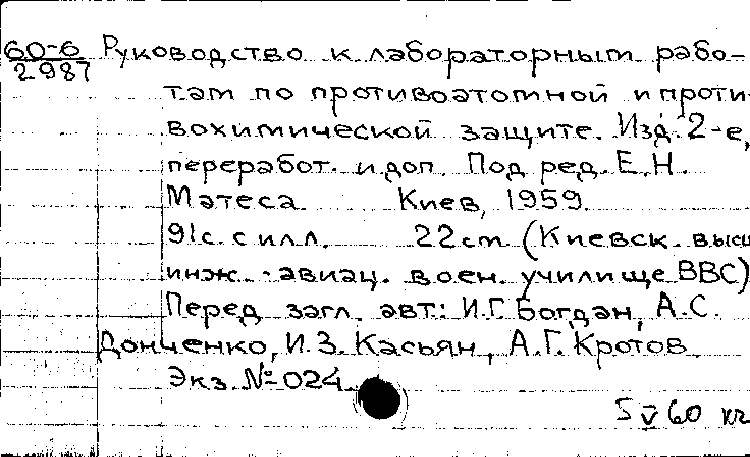 60-6
2987
Руководство к лабораторным рабо-
там по противоатомной и проти
вохимической защите. Изд. 2-е,
переработ. и доп. Под ред. Е.Н.
Матеса Киев, 1959
91с. с илл. 22 см (Киевск. высш
инж. - авиац. воен. училище ВВС)
Перед загл. авт: И.Г. Богдан, А.С.
Донченко, И.З. Касьян, А.Г. Кротов
Экз. № 024.
5 V 60 кг